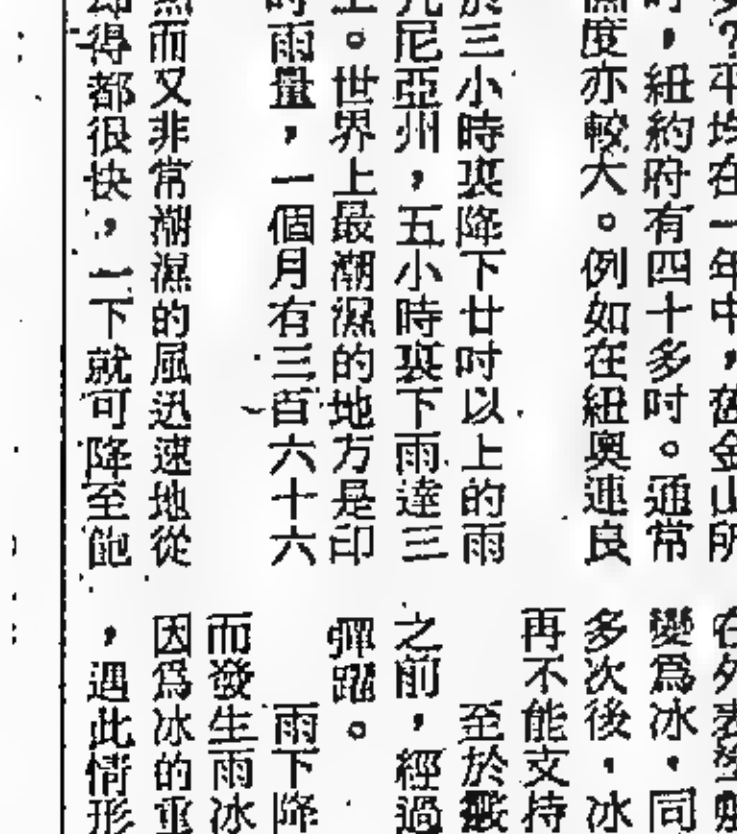 平均在一年中，舊金山所
，紐約府有四十多吋。通常
度亦較大。例如在紐奧連良
三小時裏降下廿吋以上的雨
尼亞州，五小時裏下雨達三
。世界上最潮濕的地方是印
雨量，一個月有三百六十六
而又非常潮濕的風迅速地從
得都很快，一下就可降至飽
在外表
變爲冰，同
多次後，冰
再不能支持
至於
之前，經過
彈躍。
雨下降
而發生雨冰
因爲冰的重
，遇此情形